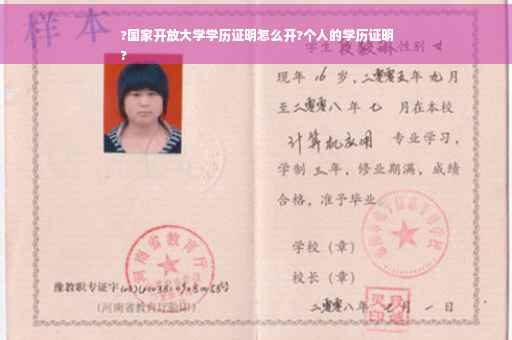 样本
?国家开放大学学历证明怎么开?个人的学历证明
?
学生 性别 女
现年 16 岁，二零零五年 九月
至二零零八年 七 月在本校
计算机应用 专业学习，
学制 三年，修业期满，成绩
合格，准予毕业
学校（章）
校长（章）
二零零八年 月 一 日
河南省教育厅
豫教职专证字
(河南省教育厅验印)